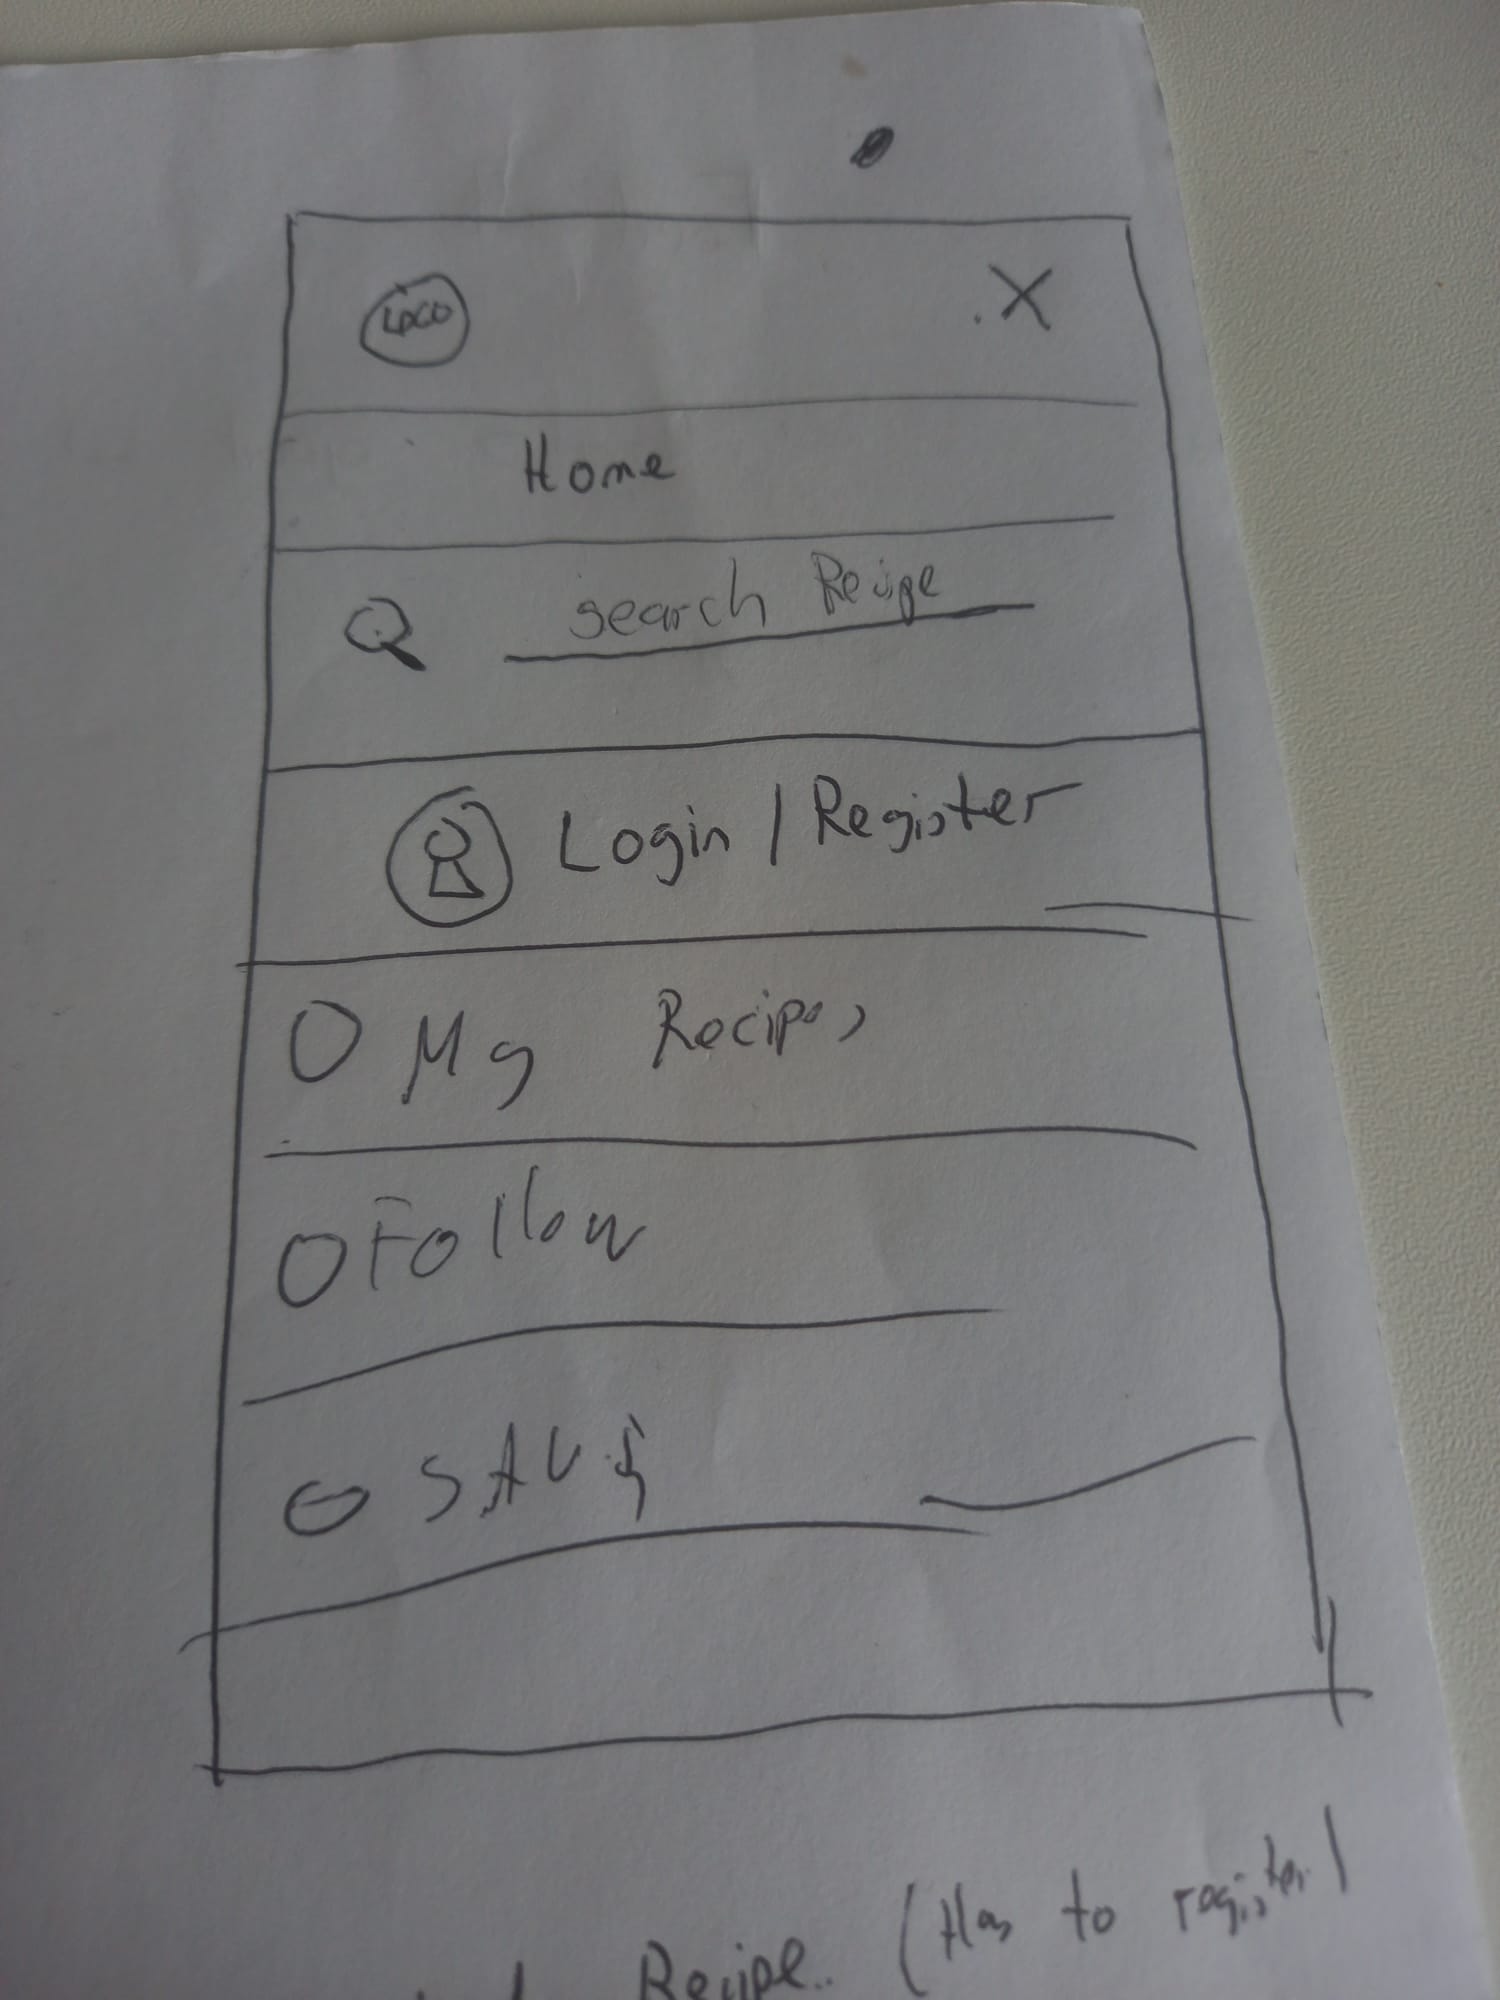 LOGO X
Home
search Recipe
Login / Register
My Recipes
Follow
SAVE
Recipe. (Has to register)